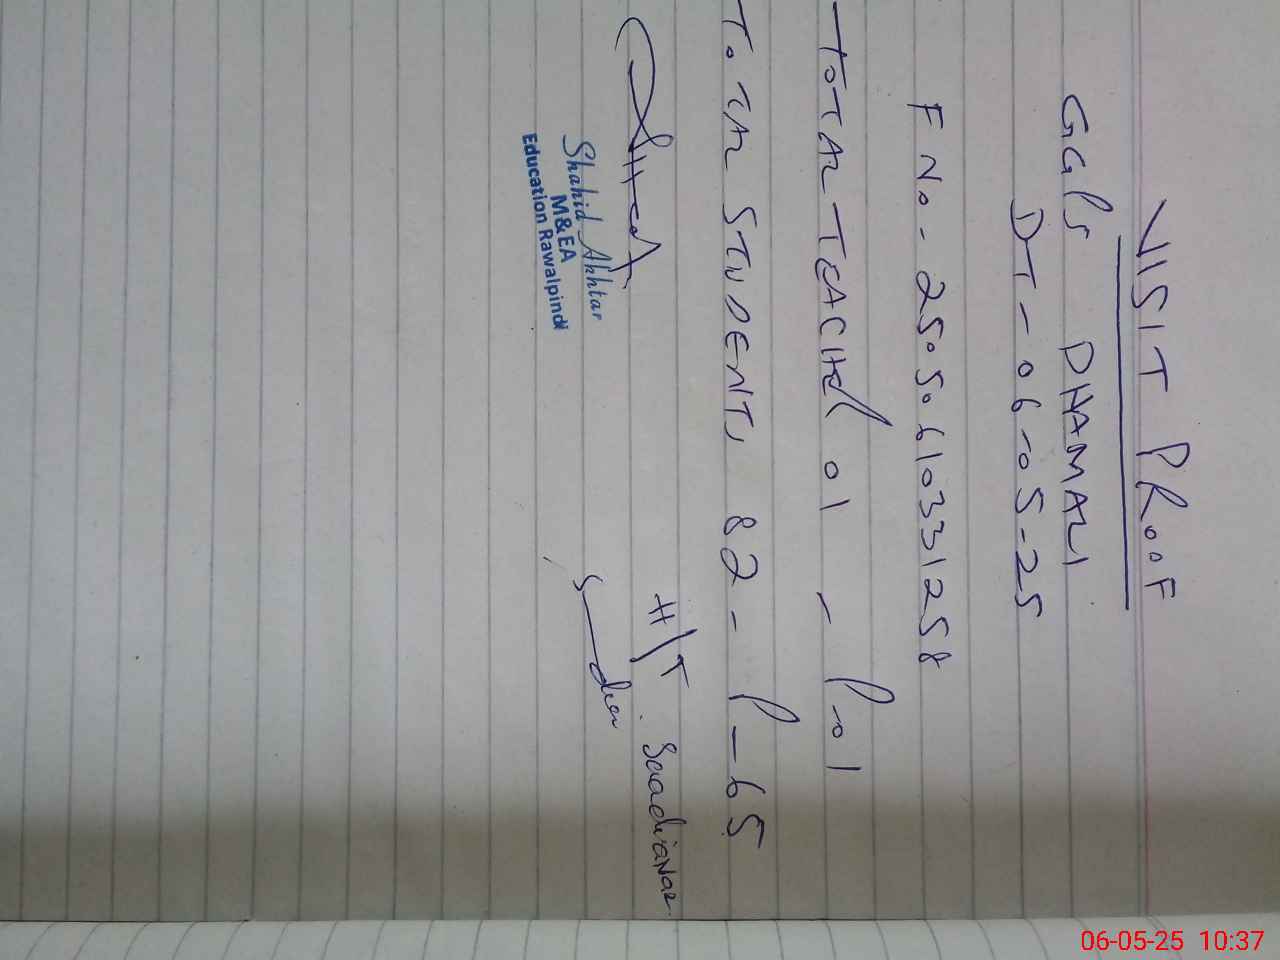 VISIT PROOF
GGPS DHAMALI
DT-06-05-25
F No- 25050610331258
TOTAL TEACHER 01 - P-01
TOTAL STUDENTS 82 - P-65
H/T
Shahid Akhtar
M&EA
Education Rawalpindi
06-05-25 10:37